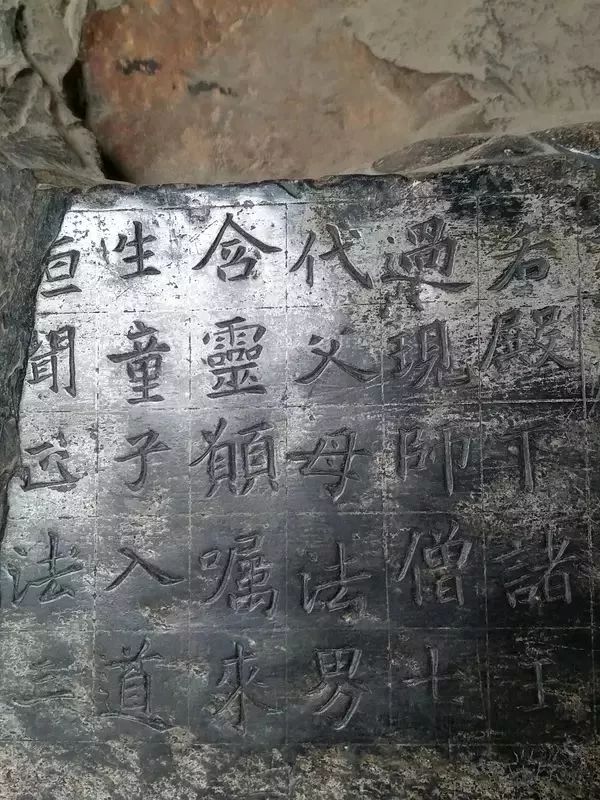 右殿下諸王
過現師僧七
代父母法界
含靈願囑来
生童子入道
恒聞正法三